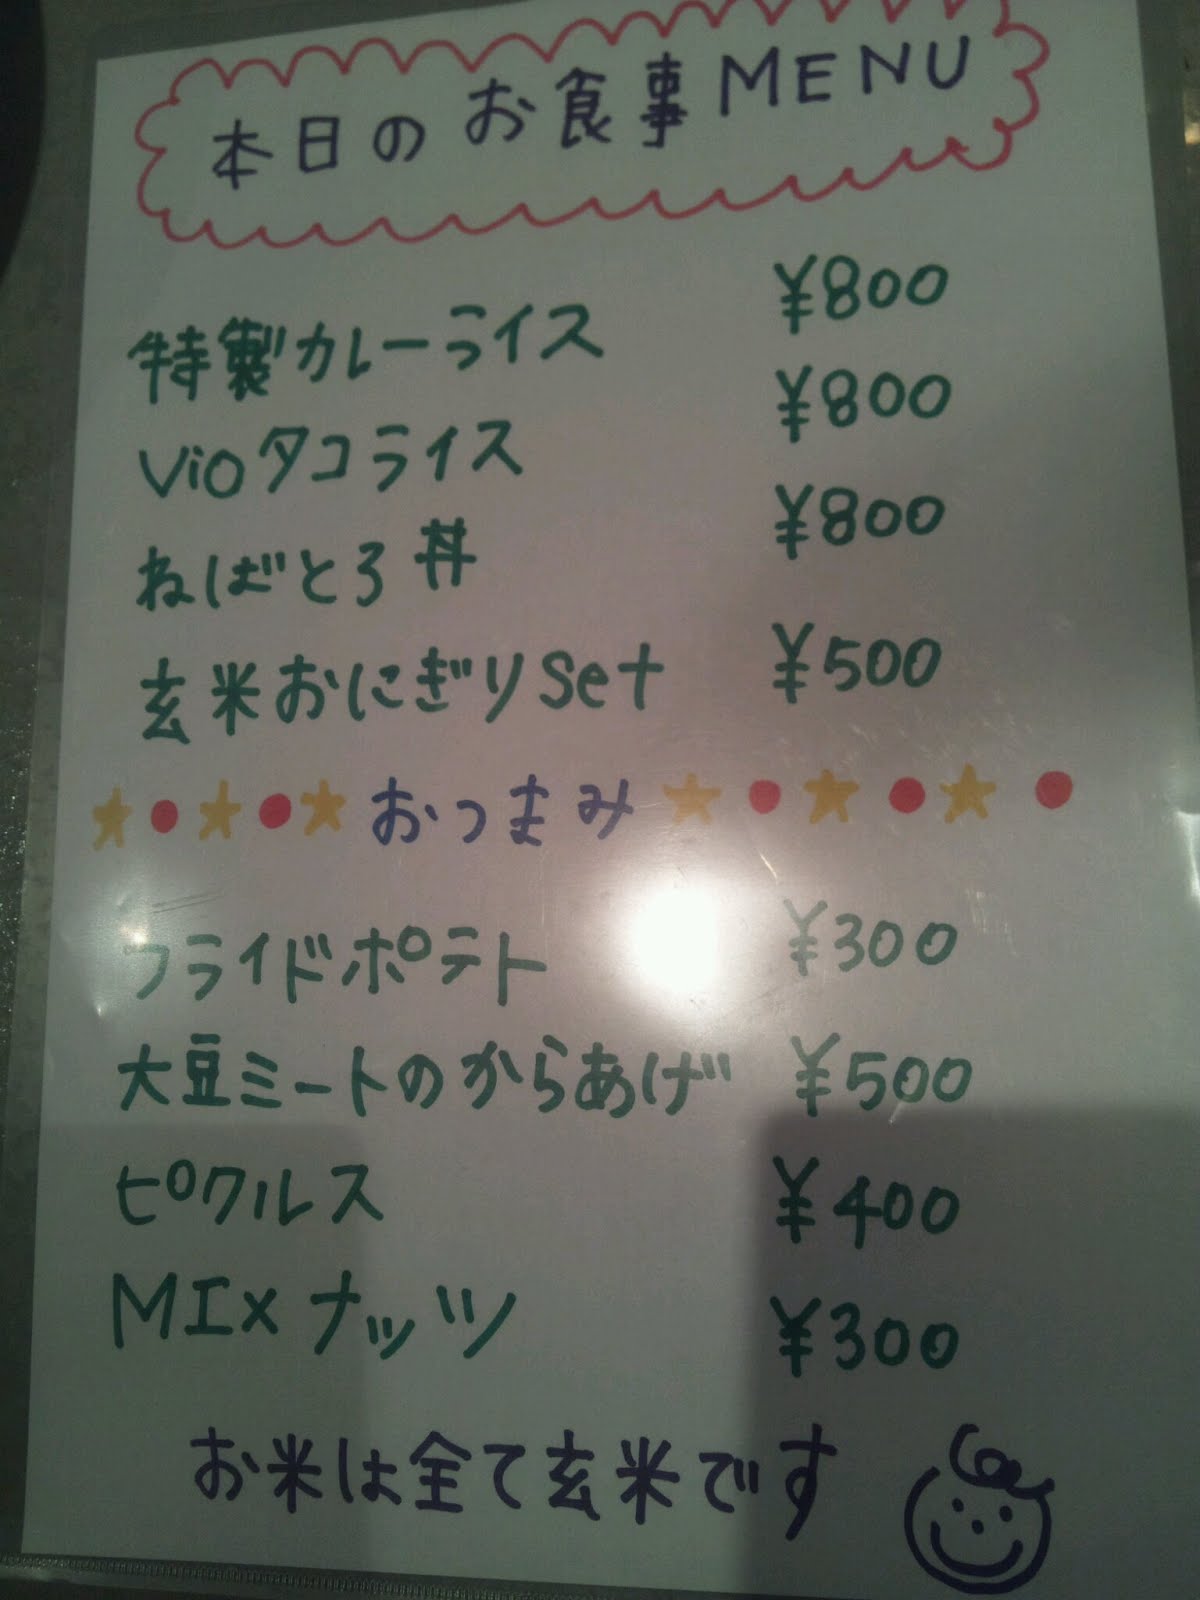 本日のお食事MENU
特製カレーライス ¥800
Vioタコライス ¥800
ねばとろ丼 ¥800
玄米おにぎりset ¥500
★●★●★おつまみ★●★●★●
フライドポテト ¥300
大豆ミートのからあげ ¥500
ピクルス ¥400
MIxナッツ ¥300
お米は全て玄米です